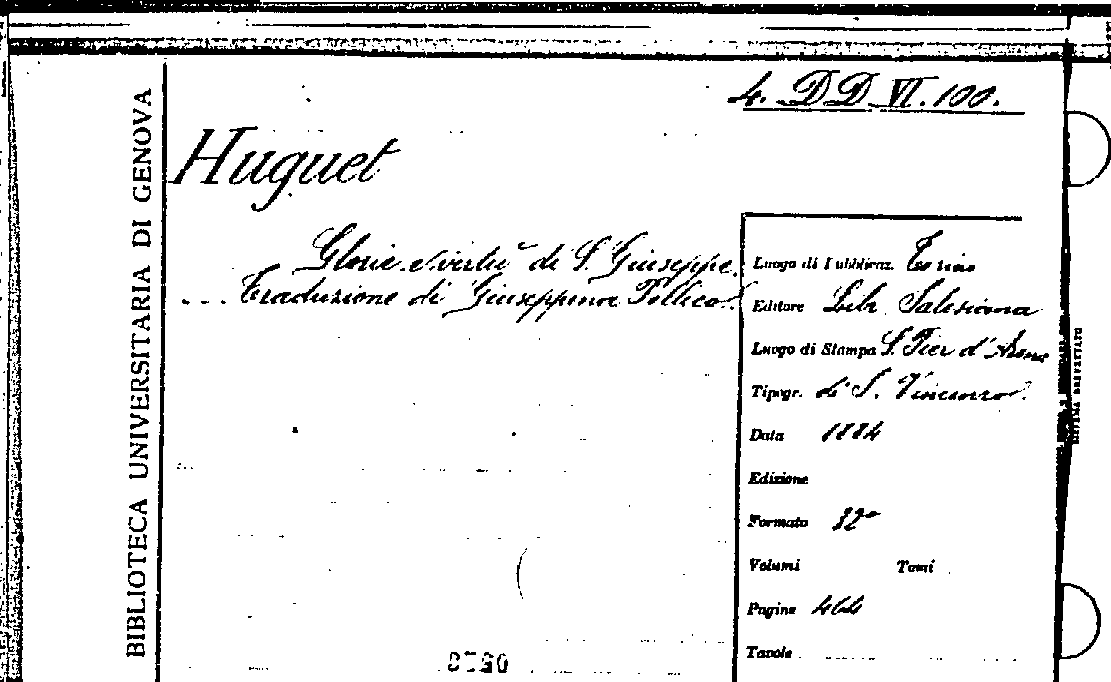 4. DD VI. 100.
BIBLIOTECA UNIVERSITARIA DI GENOVA
Huguet
Glorie e virtù di S. Giuseppe.
Traduzione di Giuseppina Pellico.
Luogo di Pubblicaz. Torino
Editore Libr. Salesiana
Luogo di Stampa S. Pier d'Arena
Tipogr. di S. Vincenzo.
Data 1884
Edizione
Formato 32°
Volumi Tomi
Pagine 464
Tavole